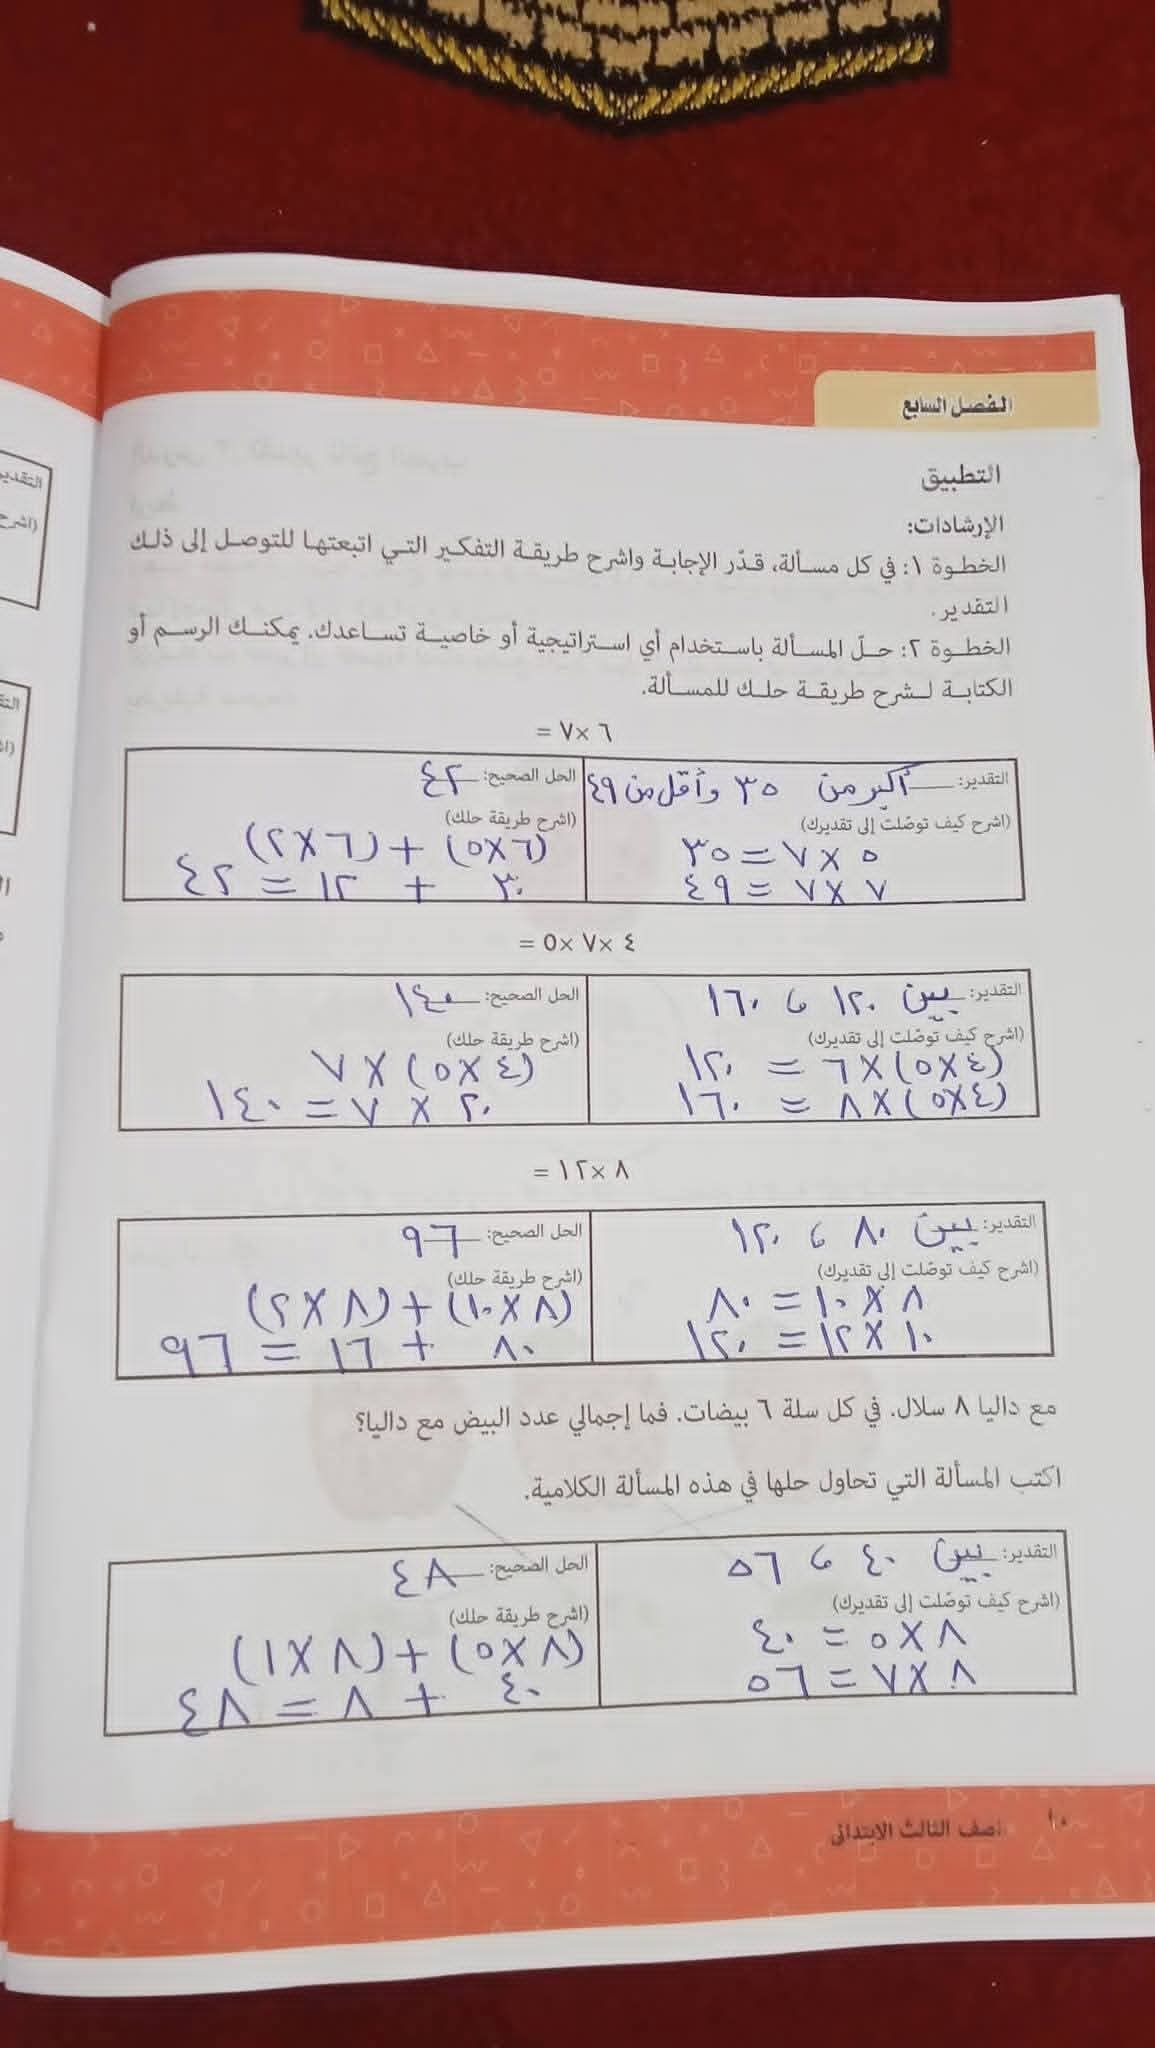 الفصل السابع
التطبيق
الإرشادات:
الخطوة ١: في كل مسألة، قدّر الإجابة واشرح طريقة التفكير التي اتبعتها للتوصل إلى ذلك
التقدير.
الخطوة ٢: حلّ المسألة باستخدام أي استراتيجية أو خاصية تساعدك. يمكنك الرسم أو
الكتابة لشرح طريقة حلك للمسألة.
٦ × ٧ =
التقدير: أكبر من ٣٥ وأقل من ٤٩
(اشرح كيف توصّلت إلى تقديرك)
٥ × ٧ = ٣٥
٧ × ٧ = ٤٩
الحل الصحيح: ٤٢
(اشرح طريقة حلك)
(٦ × ٥) + (٦ × ٢)
٣٠ + ١٢ = ٤٢
٤ × ٧ × ٥ =
التقدير: بين ١٢٠ ، ١٦٠
(اشرح كيف توصّلت إلى تقديرك)
(٤ × ٥) × ٦ = ١٢٠
(٤ × ٥) × ٨ = ١٦٠
الحل الصحيح: ١٤٠
(اشرح طريقة حلك)
(٤ × ٥) × ٧
٢٠ × ٧ = ١٤٠
٨ × ١٢ =
التقدير: بين ٨٠ ، ١٢٠
(اشرح كيف توصّلت إلى تقديرك)
٨ × ١٠ = ٨٠
١٠ × ١٢ = ١٢٠
الحل الصحيح: ٩٦
(اشرح طريقة حلك)
(٨ × ١٠) + (٨ × ٢)
٨٠ + ١٦ = ٩٦
مع داليا ٨ سلال. في كل سلة ٦ بيضات. فما إجمالي عدد البيض مع داليا؟
اكتب المسألة التي تحاول حلها في هذه المسألة الكلامية.
التقدير: بين ٤٠ ، ٥٦
(اشرح كيف توصّلت إلى تقديرك)
٨ × ٥ = ٤٠
٨ × ٧ = ٥٦
الحل الصحيح: ٤٨
(اشرح طريقة حلك)
(٨ × ٥) + (٨ × ١)
٤٠ + ٨ = ٤٨
١٠ الصف الثالث الابتدائي